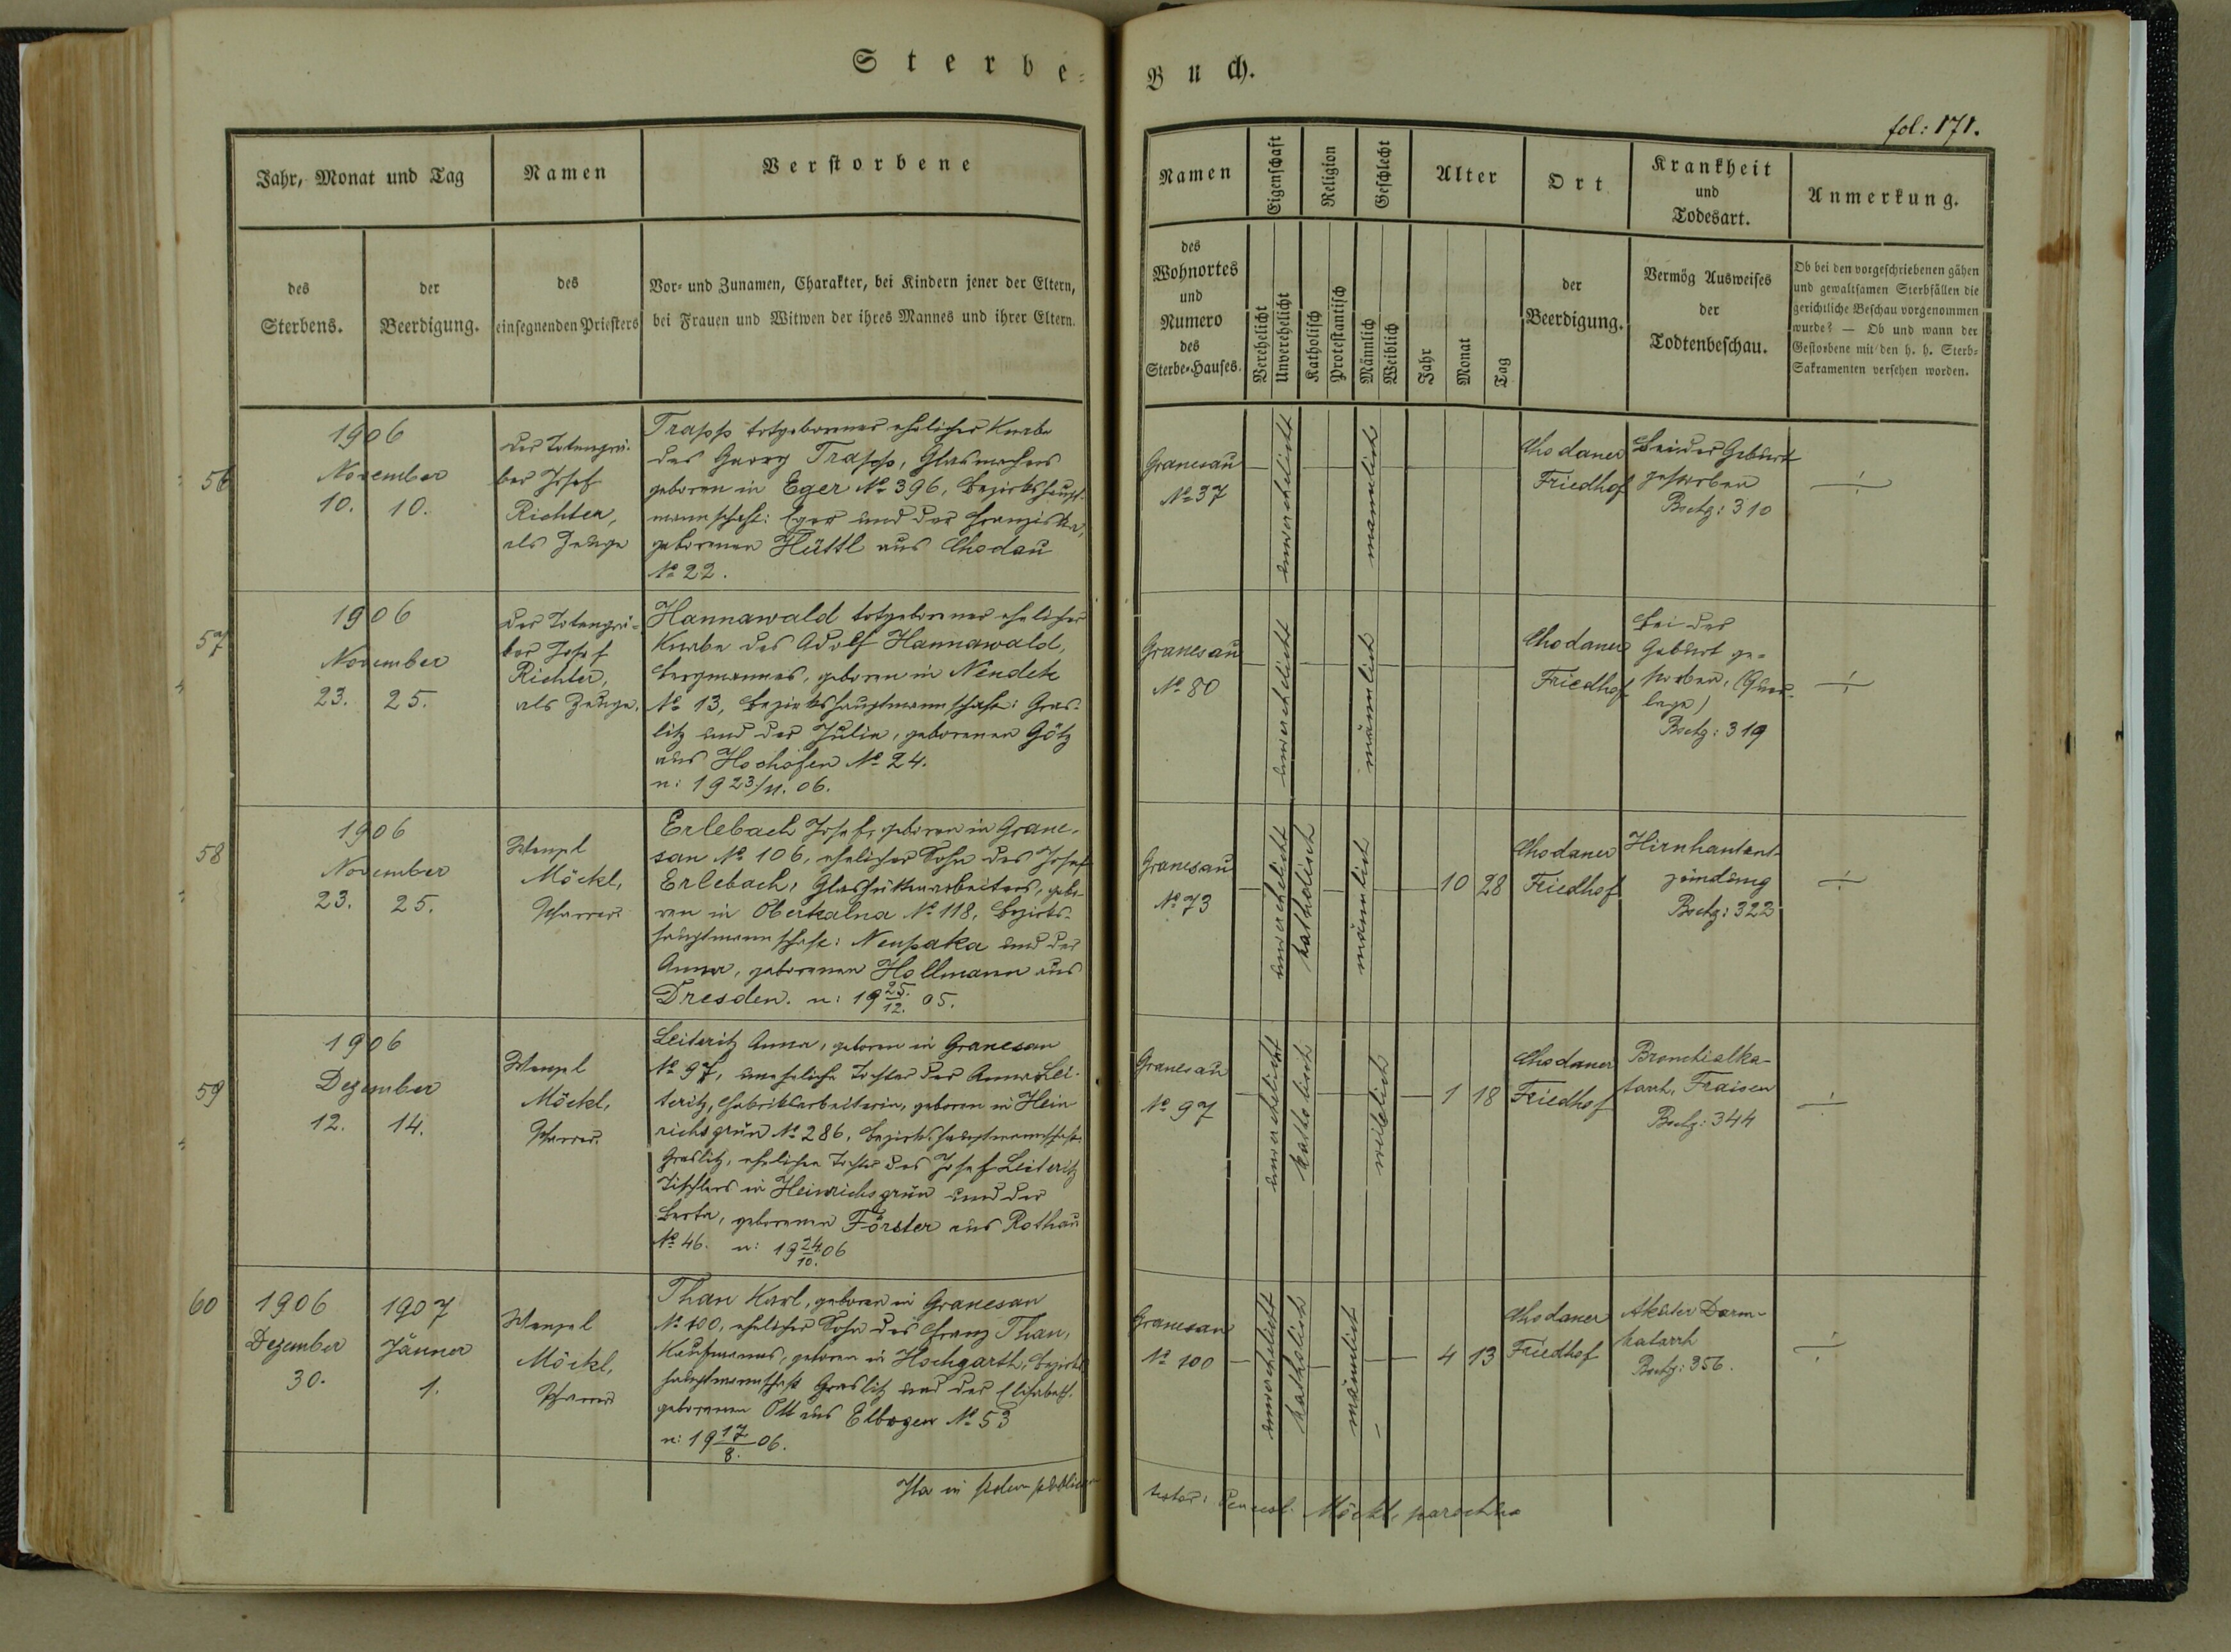 Sterbe=
Buch.
fol: 171.
Jahr, Monat und Tag
Namen
Verstorbene
des
Sterbens.
der
Beerdigung.
des
einsegnenden Priesters
Vor- und Zunamen, Charakter, bei Kindern jener der Eltern,
bei Frauen und Witwen der ihres Mannes und ihrer Eltern.
Namen
Eigenschaft
Religion
Geschlecht
Alter
Ort
Krankheit
und
Todesart.
Anmerkung.
des
Wohnortes
und
Numero
des
Sterbe-Hauses.
Verehelicht
Unverehelicht
Katholisch
Protestantisch
Männlich
Weiblich
Jahr
Monat
Tag
der
Beerdigung.
Vermög Ausweises
der
Todtenbeschau.
Ob bei den vorgeschriebenen gähen
und gewaltsamen Sterbfällen die
gerichtliche Beschau vorgenommen
wurde? — Ob und wann der
Gestorbene mit den h. h. Sterb-
Sakramenten versehen worden.
56
1906
November
10. 10.
der Totengrä-
ber Josef
Richter,
als Zeuge
Trapp totgeborener ehelicher Knabe
des Georg Trapp, Glasmachers
geboren in Eger № 396, Bezirkshaupt-
mannschaft: Eger und der Franziska,
geborenen Hüttl aus Chodau
№ 22.
Granesau
№ 37
unverehelicht
männlich
Chodauer
Friedhof
Bei der Geburt
gestorben
Bschtg: 310
57
1906
November
23. 25.
der Totengrä-
ber Josef
Richter,
als Zeuge.
Hannawald totgeborener ehelicher
Knabe des Adolf Hannawald,
Bergmannes, geboren in Neudek
№ 13, Bezirkshauptmannschaft: Gras-
litz und der Julia, geborenen Götz
aus Hochofen № 24.
n: 19 23/11. 06.
Granesau
№ 80
unverehelicht
männlich
Chodauer
Friedhof
Bei der
Geburt ge-
storben, (Quer-
lage)
Bschtg: 319
58
1906
November
23. 25.
Wenzel
Möckl,
Pfarrer
Erlebach Josef, geboren in Grane-
sau № 106, ehelicher Sohn des Josef
Erlebach, Glashüttenarbeiters, gebo-
ren in Oberkalna № 118, Bezirks-
hauptmannschaft: Neupaka und der
Anna, geborenen Hollmann aus
Dresden. n: 19 25./12. 05.
Granesau
№ 73
unverehelicht
katholisch
männlich
10 28
Chodauer
Friedhof
Hirnhautent-
zündung
Bschtg: 322
59
1906
Dezember
12. 14.
Wenzel
Möckl,
Pfarrer
Leiteritz Anna, geboren in Granesau
№ 97, uneheliche Tochter der Anna Lei-
teritz, Fabriksarbeiterin, geboren in Hein
richsgrün № 286, Bezirkshauptmannschaft
Graslitz, ehelichen Tochter des Josef Leiteritz
Tischlers in Heinrichsgrün und der
Berta, geborenen Förster aus Rothau
№ 46. n: 19 24/10. 06
Granesau
№ 97
unverehelicht
katholisch
weiblich
1 18
Chodauer
Friedhof
Bronchialka-
tarrh, Fraisen
Bschtg: 344
60
1906
Dezember
30.
1907
Jänner
1.
Wenzel
Möckl,
Pfarrer
Than Karl, geboren in Granesau
№ 100, ehelicher Sohn des Franz Than,
Kaufmannes, geboren in Hochgarth, Bezirks
hauptmannschaft Graslitz und der Elisabeth,
geborenen Ott aus Elbogen № 53
n: 19 17/8. 06.
Granesau
№ 100
unverehelicht
katholisch
männlich
4 13
Chodauer
Friedhof
Akuter Darm-
katarrh
Bschtg: 356.
Ita in fidem publicam
testor: Vencesl. Möckl, parochus